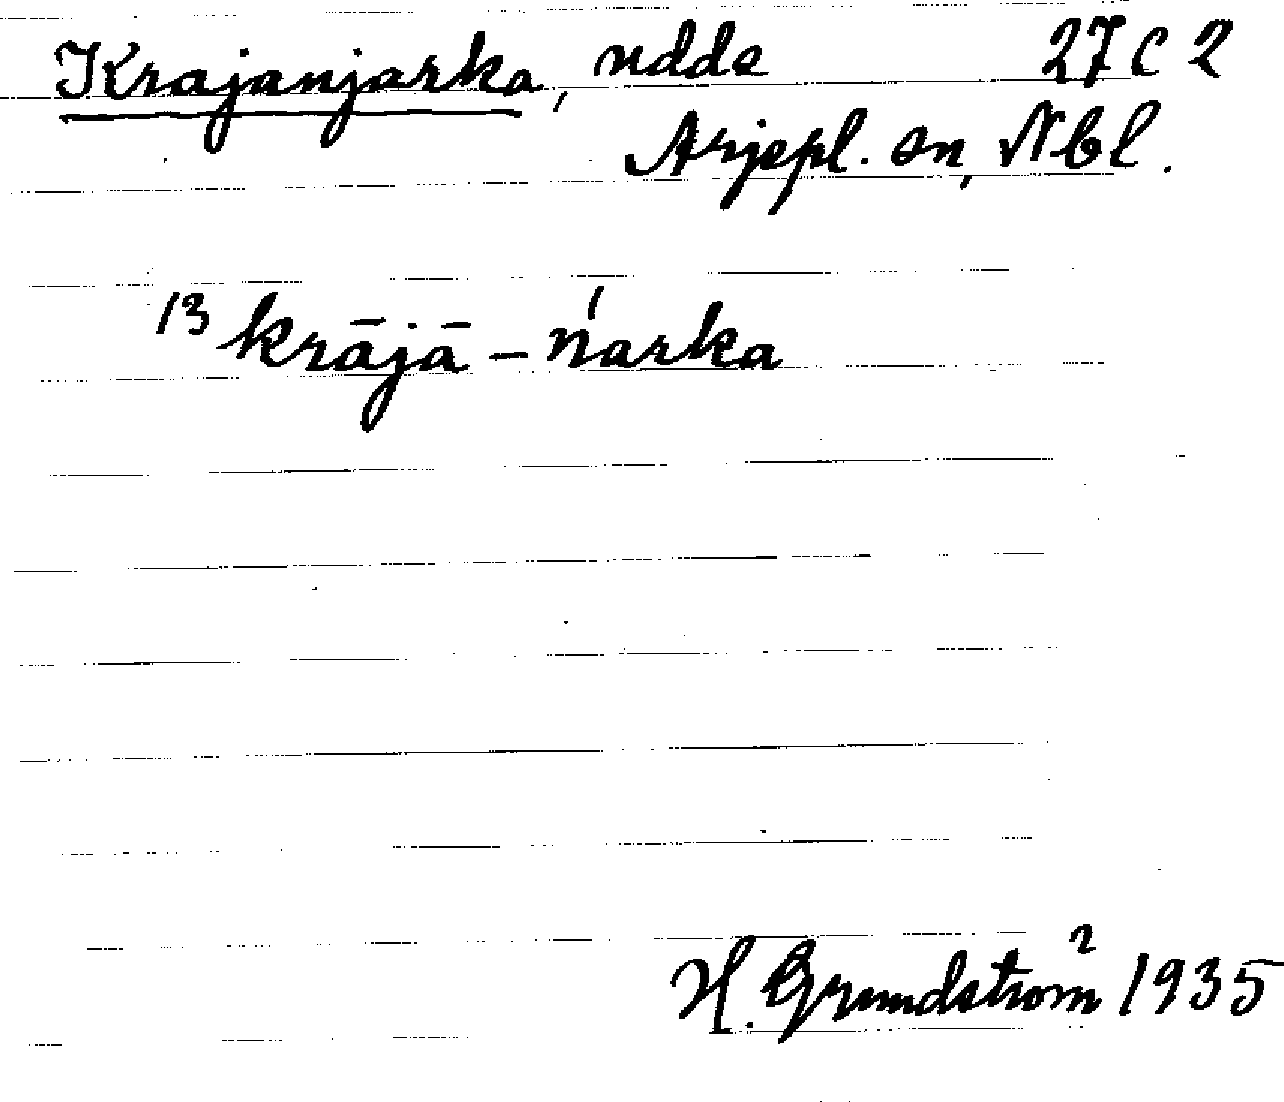 Krajanjarka, udde 27 C 2
Arjepl. sn, Nbl.
13 krājā - ńarka
H. Grundström 2 1935